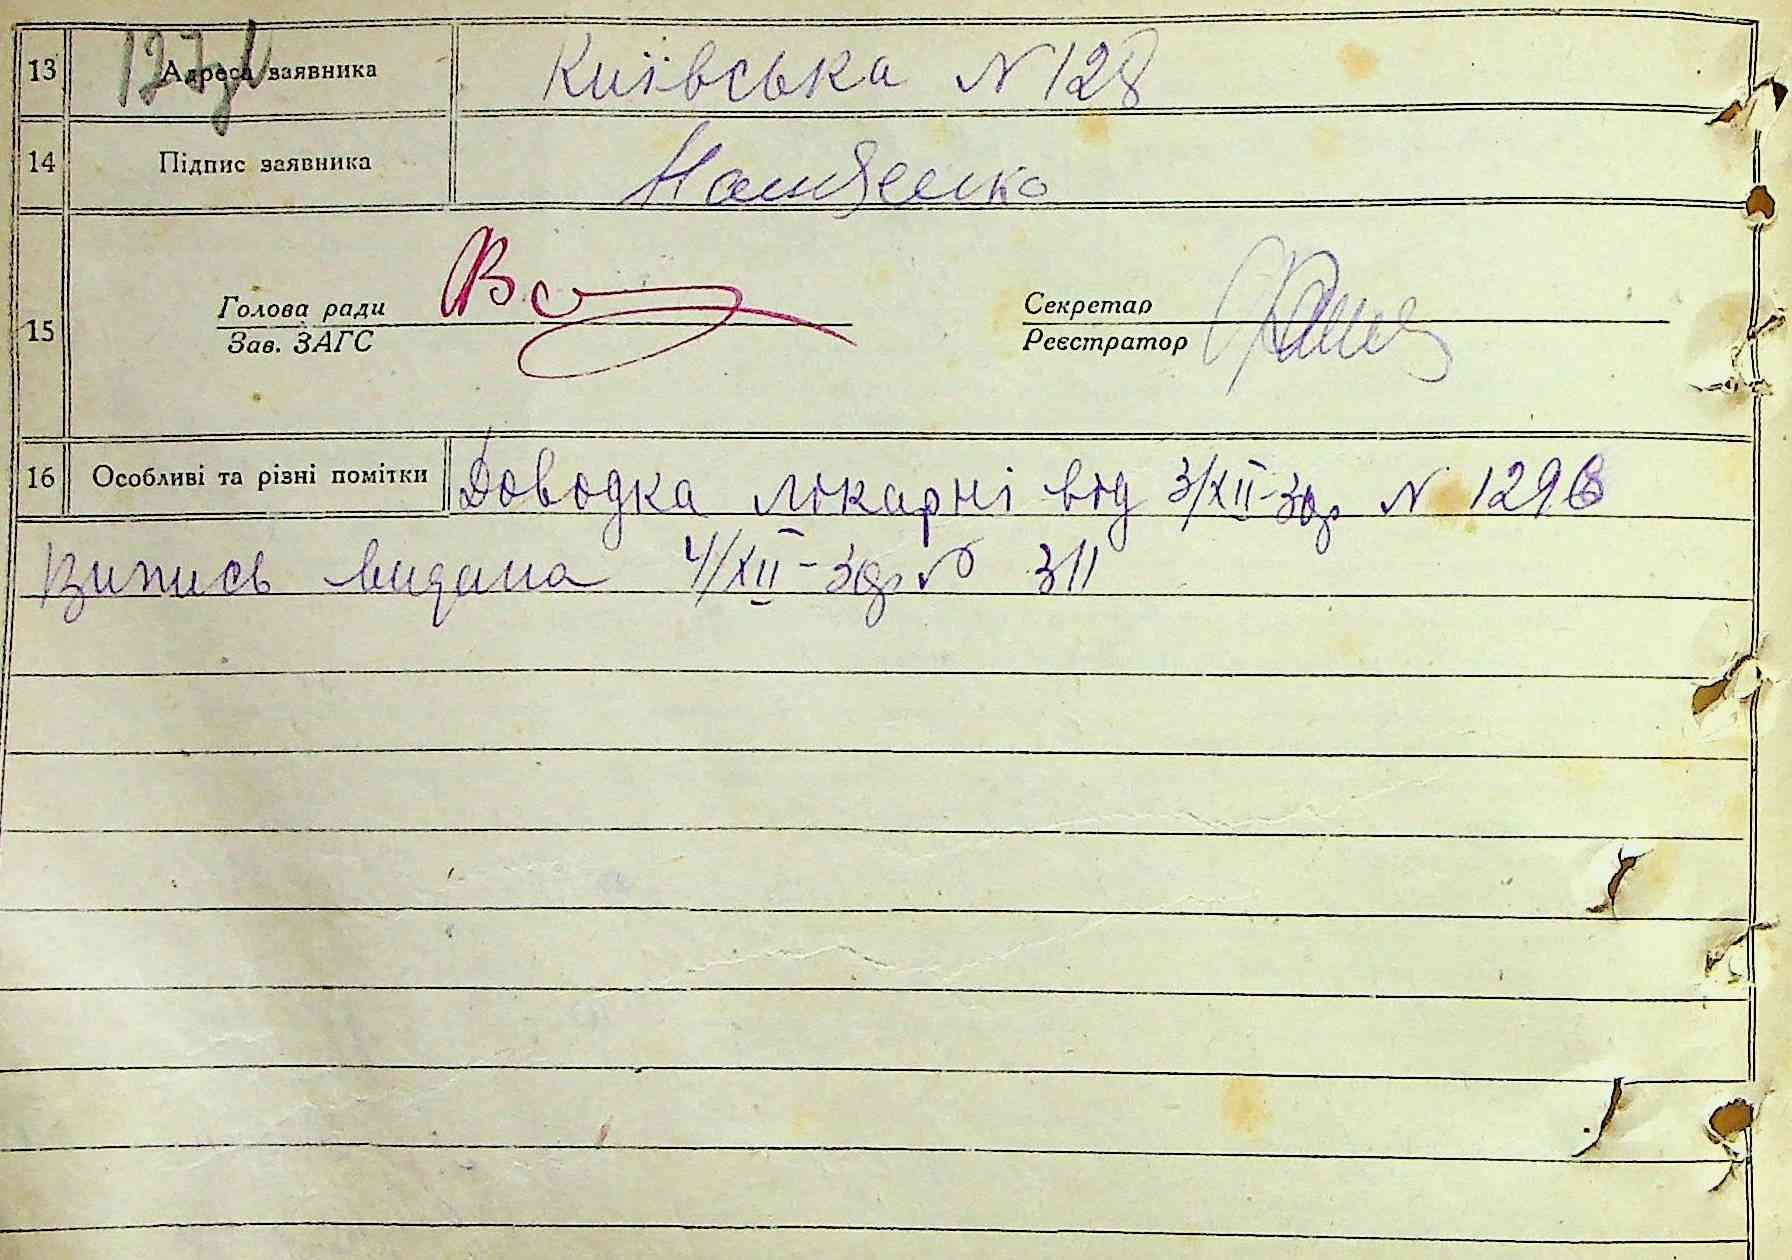 13 Адреса заявника Київська N 128
14 Підпис заявника
15 Голова ради Секретар
Зав. ЗАГС Реєстратор
16 Особливі та різні помітки Доводка лікарні від 3/XII-39р. N 1296
Випись видана 4/XII-39р. N 311